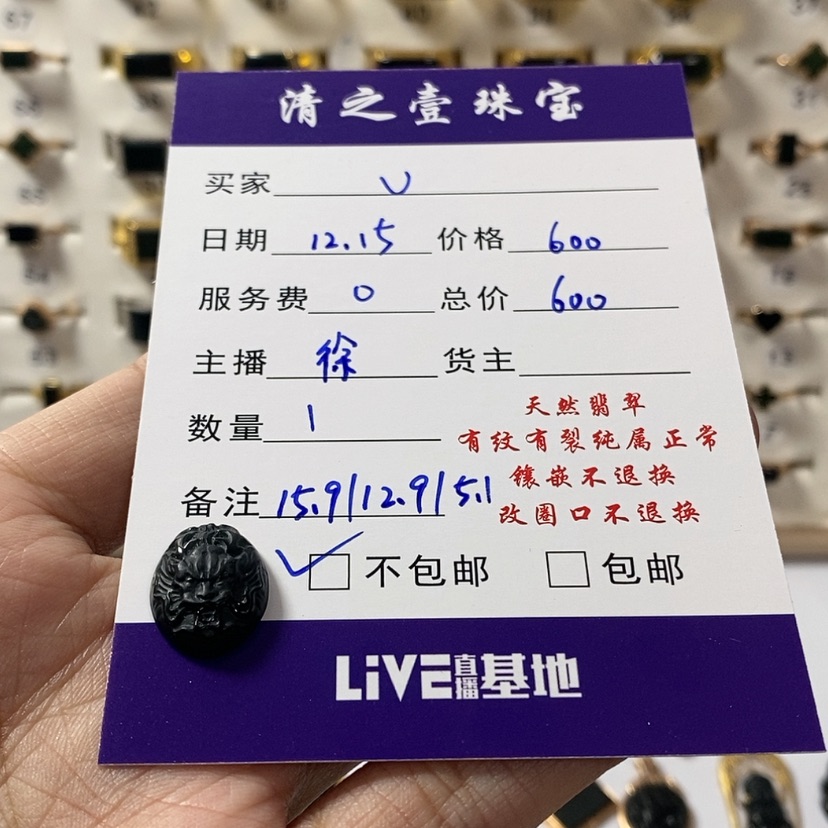 清之壹珠宝
买家 U
日期 12.15 价格 600
服务费 0 总价 600
主播 徐 货主
数量 1
天然翡翠
有纹有裂纯属正常
镶嵌不退换
改圈口不退换
备注 15.9/12.9/5.1
✓ 不包邮 包邮
LiVE直播基地